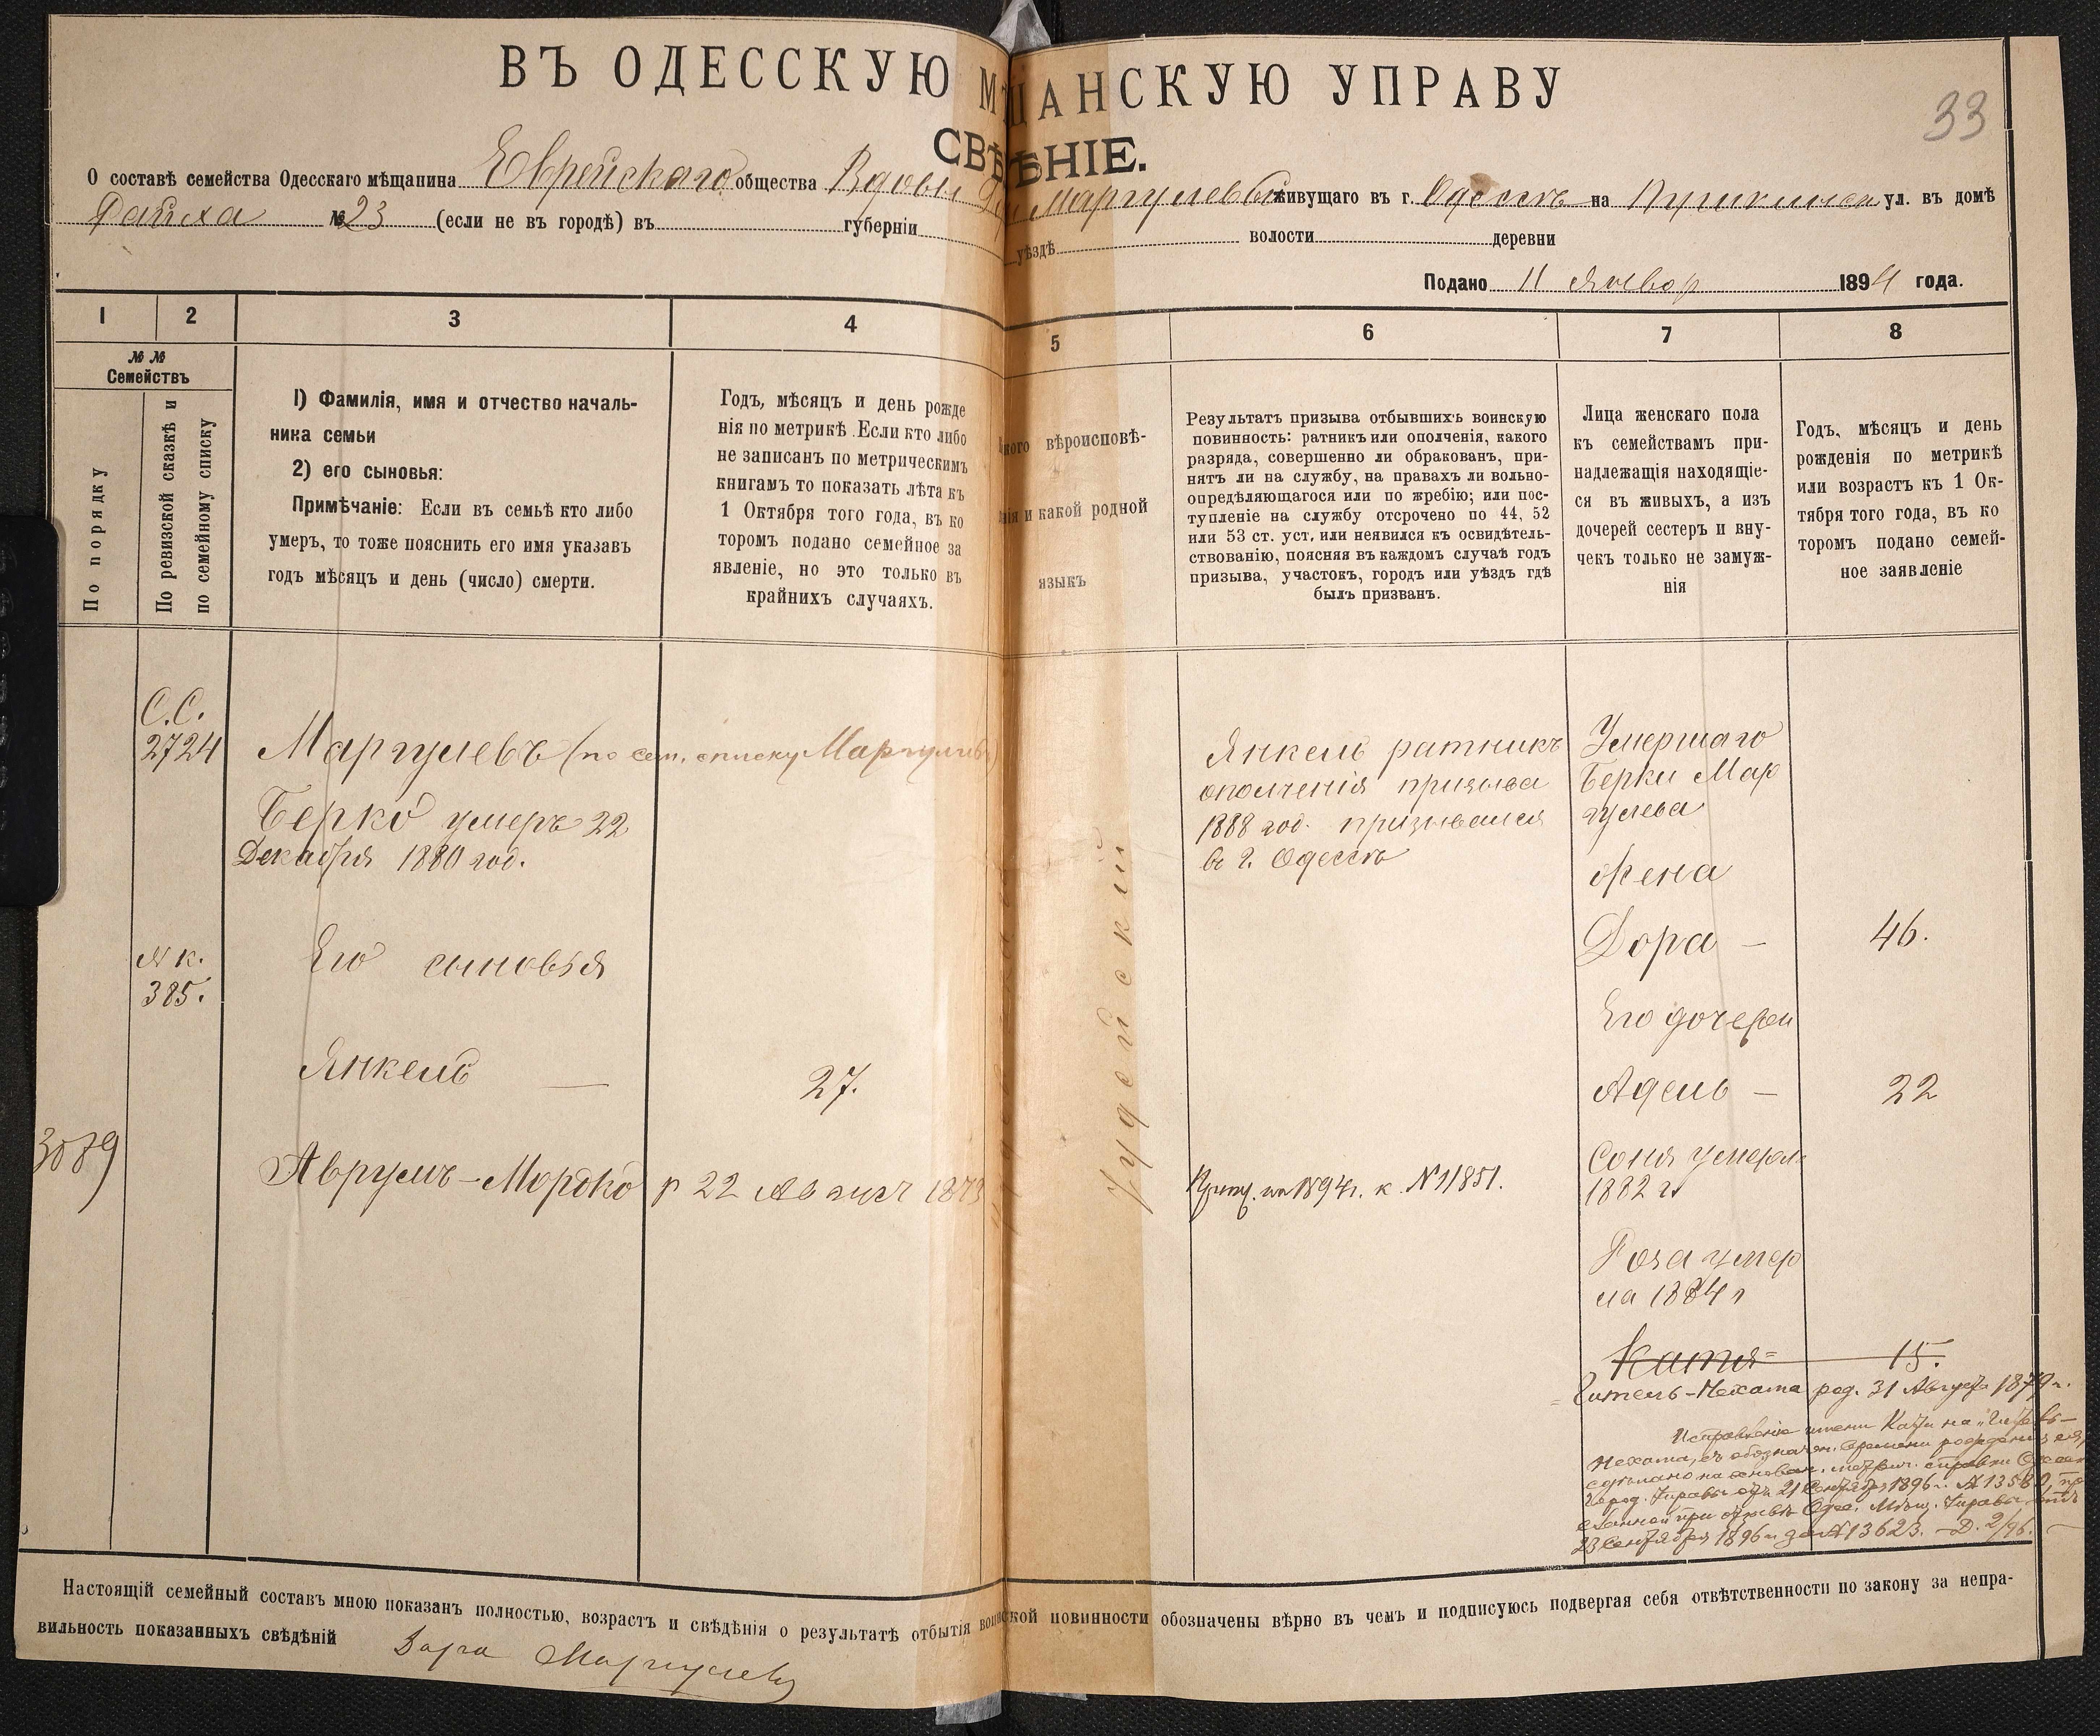 ВЪ ОДЕССКУЮ МѢЩАНСКУЮ УПРАВУ
33
СВѢДѢНІЕ.
О составѣ семейства Одесскаго мѣщанина Еврейскаго общества Вдовы Маргулевой живущаго въ г. Одессѣ на Пушкинск ул. въ домѣ
№ 23 (если не въ городѣ) въ губерніи уѣздѣ волости деревни
Подано 11 Январ 1894 года.
1 2 3 4 5 6 7 8
№ №
Семействъ
По порядку
По ревизской сказкѣ и
по семейному списку
1) Фамилія, имя и отчество началь-
ника семьи
2) его сыновья:
Примѣчаніе: Если въ семьѣ кто либо
умеръ, то тоже пояснить его имя указавъ
годъ мѣсяцъ и день (число) смерти.
Годъ, мѣсяцъ и день рожде
нія по метрикѣ. Если кто либо
не записанъ по метрическимъ
книгамъ то показать лѣта къ
1 Октября того года, въ ко
торомъ подано семейное за
явленіе, но это только въ
крайнихъ случаяхъ.
вѣроисповѣ-
и какой родной
языкъ
Результатъ призыва отбывшихъ воинскую
повинность: ратникъ или ополченія, какого
разряда, совершенно ли обракованъ, при-
нятъ ли на службу, на правахъ ли вольно-
опредѣляющагося или по жребію; или пос-
тупленіе на службу отсрочено по 44, 52
или 53 ст. уст. или неявился къ освидѣтель-
ствованію, поясняя въ каждомъ случаѣ годъ
призыва, участокъ, городъ или уѣздъ гдѣ
былъ призванъ.
Лица женскаго пола
къ семействамъ при-
надлежащія находящіе-
ся въ живыхъ, а изъ
дочерей сестеръ и вну-
чекъ только не замуж-
нія
Годъ, мѣсяцъ и день
рожденія по метрикѣ
или возрастъ къ 1 Ок-
тября того года, въ ко
торомъ подано семей-
ное заявленіе
С.С.
2724
Маргулевъ (по сем. списку Маргулисъ)
Берко умеръ 22
Декабря 1880 год.
Як.
385.
Его сыновья
Янкель — 27.
3079
Аврумъ-Мордко р 22 Август 1873
Іудейскій
Янкель ратникъ
ополченія призыва
1888 год. призывался
в г. Одессѣ
на 1894 г. к. №1/851.
Умершаго
Берки Мар
гулева
Жена
Дора — 46.
Его дочери
Адель — 22
Соня умерла
1882 г.
Роза умер
ла 1884 г
Катя 15.
Гитель-Нехама род. 31 Августа 1879 г.
Исправленіе имени Кати на "Гитель-
Нехама, съ обозначен. времени рожденія ея,
сдѣлано на основан. метрич. справки Одесск
Город. Управы отъ 21 Сентября 1896 г.
Одес. Мѣщ. Управы отъ
23 Сентября 1896 г. за №13623. — Д. 2/96.
Настоящій семейный составъ мною показанъ полностью, возрастъ и свѣдѣнія о результатѣ отбытія воинской повинности обозначены вѣрно въ чемъ и подписуюсь подвергая себя отвѣтственности по закону за непра-
вильность показанныхъ свѣдѣній